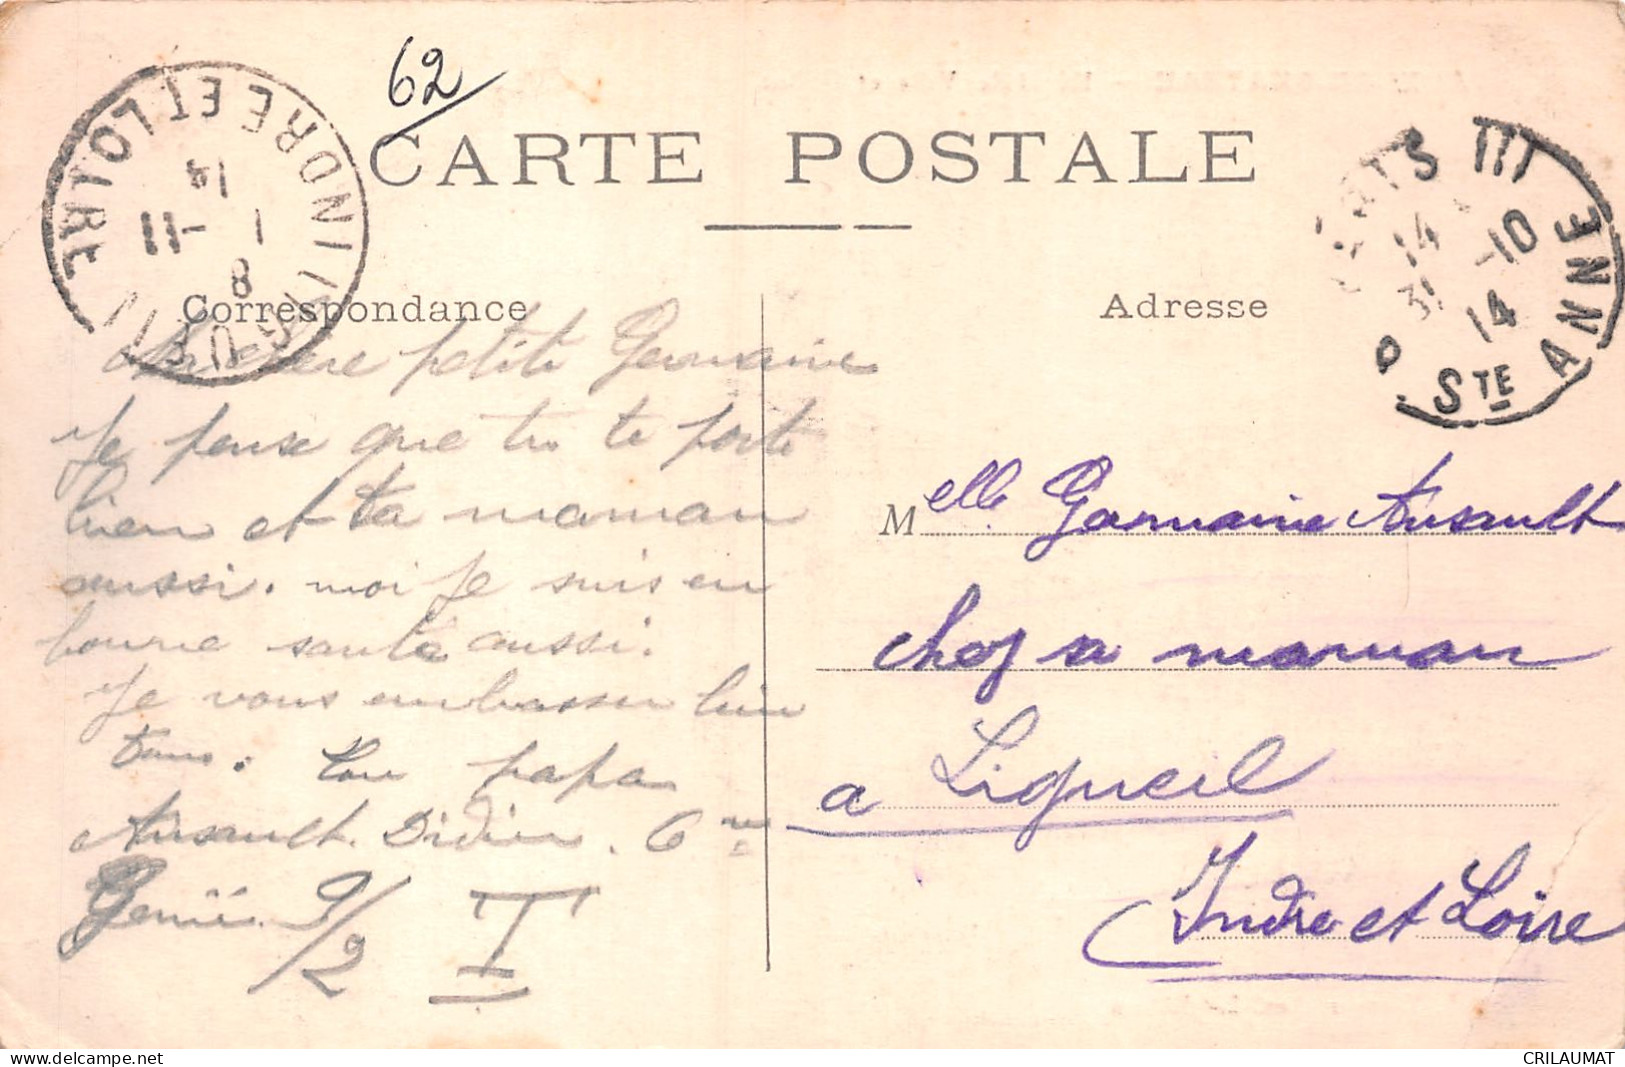 62
CARTE POSTALE
Correspondance
Adresse
INDRE ET LOIRE
14
11 - 1
8
III
14
31 - 10
14
STE ANNE
Ma chère petite Germaine
Je pense que tu te porte
bien et ta maman
aussi. moi je suis en
bonne santé aussi.
Je vous embasser bien
tous. Ton papa
Ausault. Didier. 6me
Genie. 9/2 T
Melle Germaine Ausault
chez sa maman
a Ligueil
Indre et Loire
CRILAUMAT